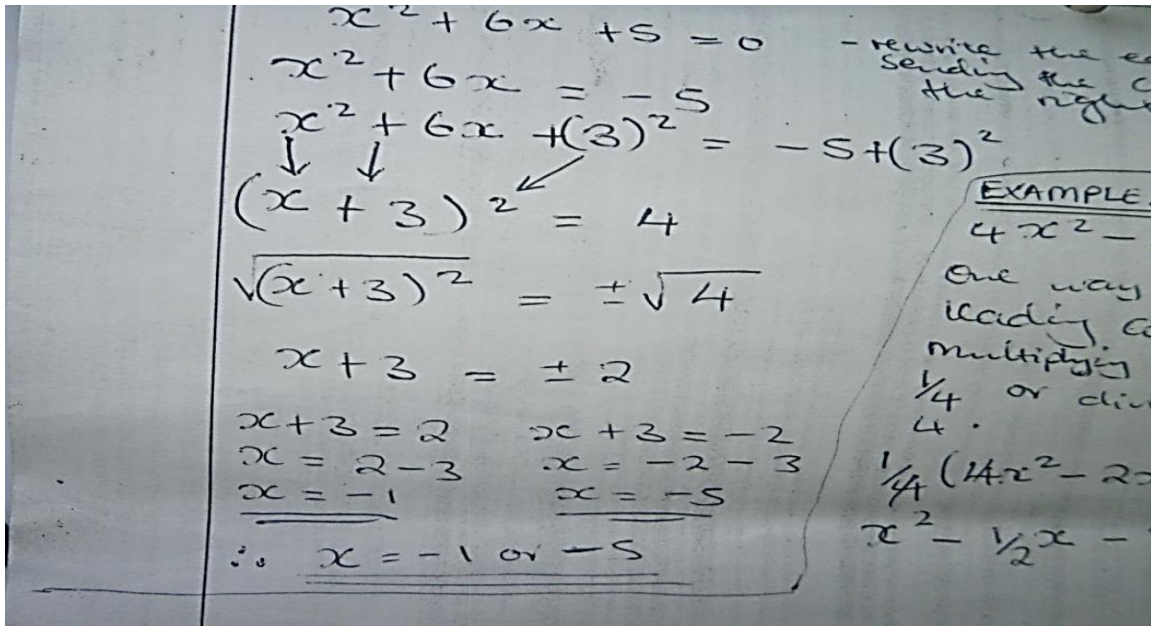 x² + 6x + 5 = 0
x² + 6x = -5
x² + 6x + (3)² = -5 + (3)²
(x + 3)² = 4
√(x + 3)² = ± √4
x + 3 = ± 2
x + 3 = 2 x + 3 = -2
x = 2 - 3 x = -2 - 3
x = -1 x = -5
∴ x = -1 or -5
- rewrite the
sending the
the right
EXAMPLE
4x² -
One way
leading
multiplying
1/4 or
4.
1/4 (4x² - 2x
x² - 1/2 x -